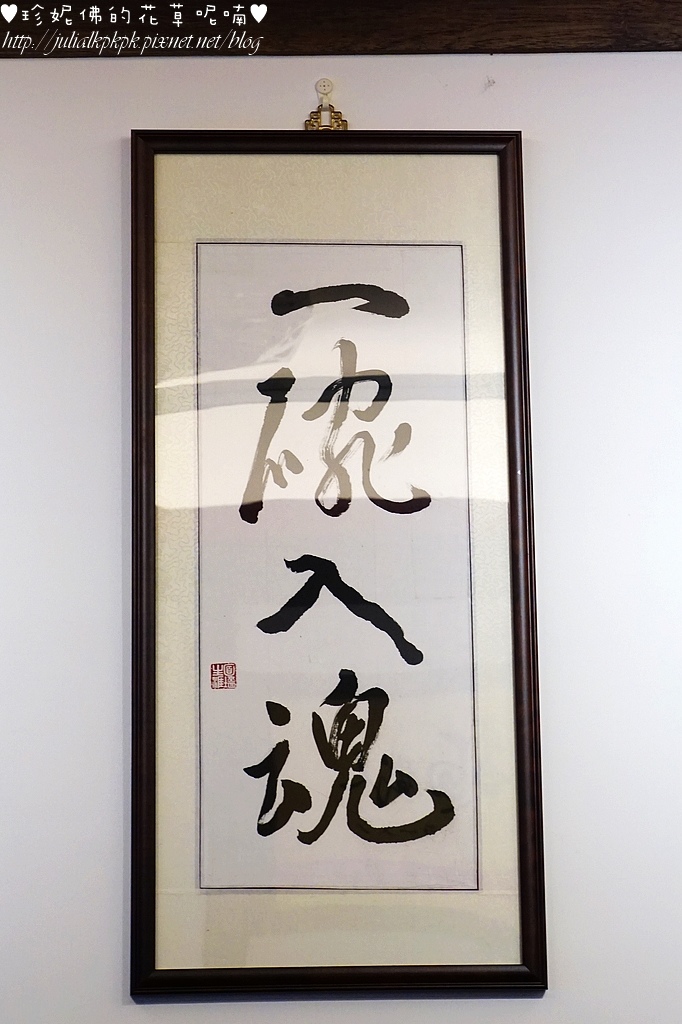 ♥珍妮佛的花草呢喃♥
http://julialkpkpk.pixnet.net/blog
一碗入魂